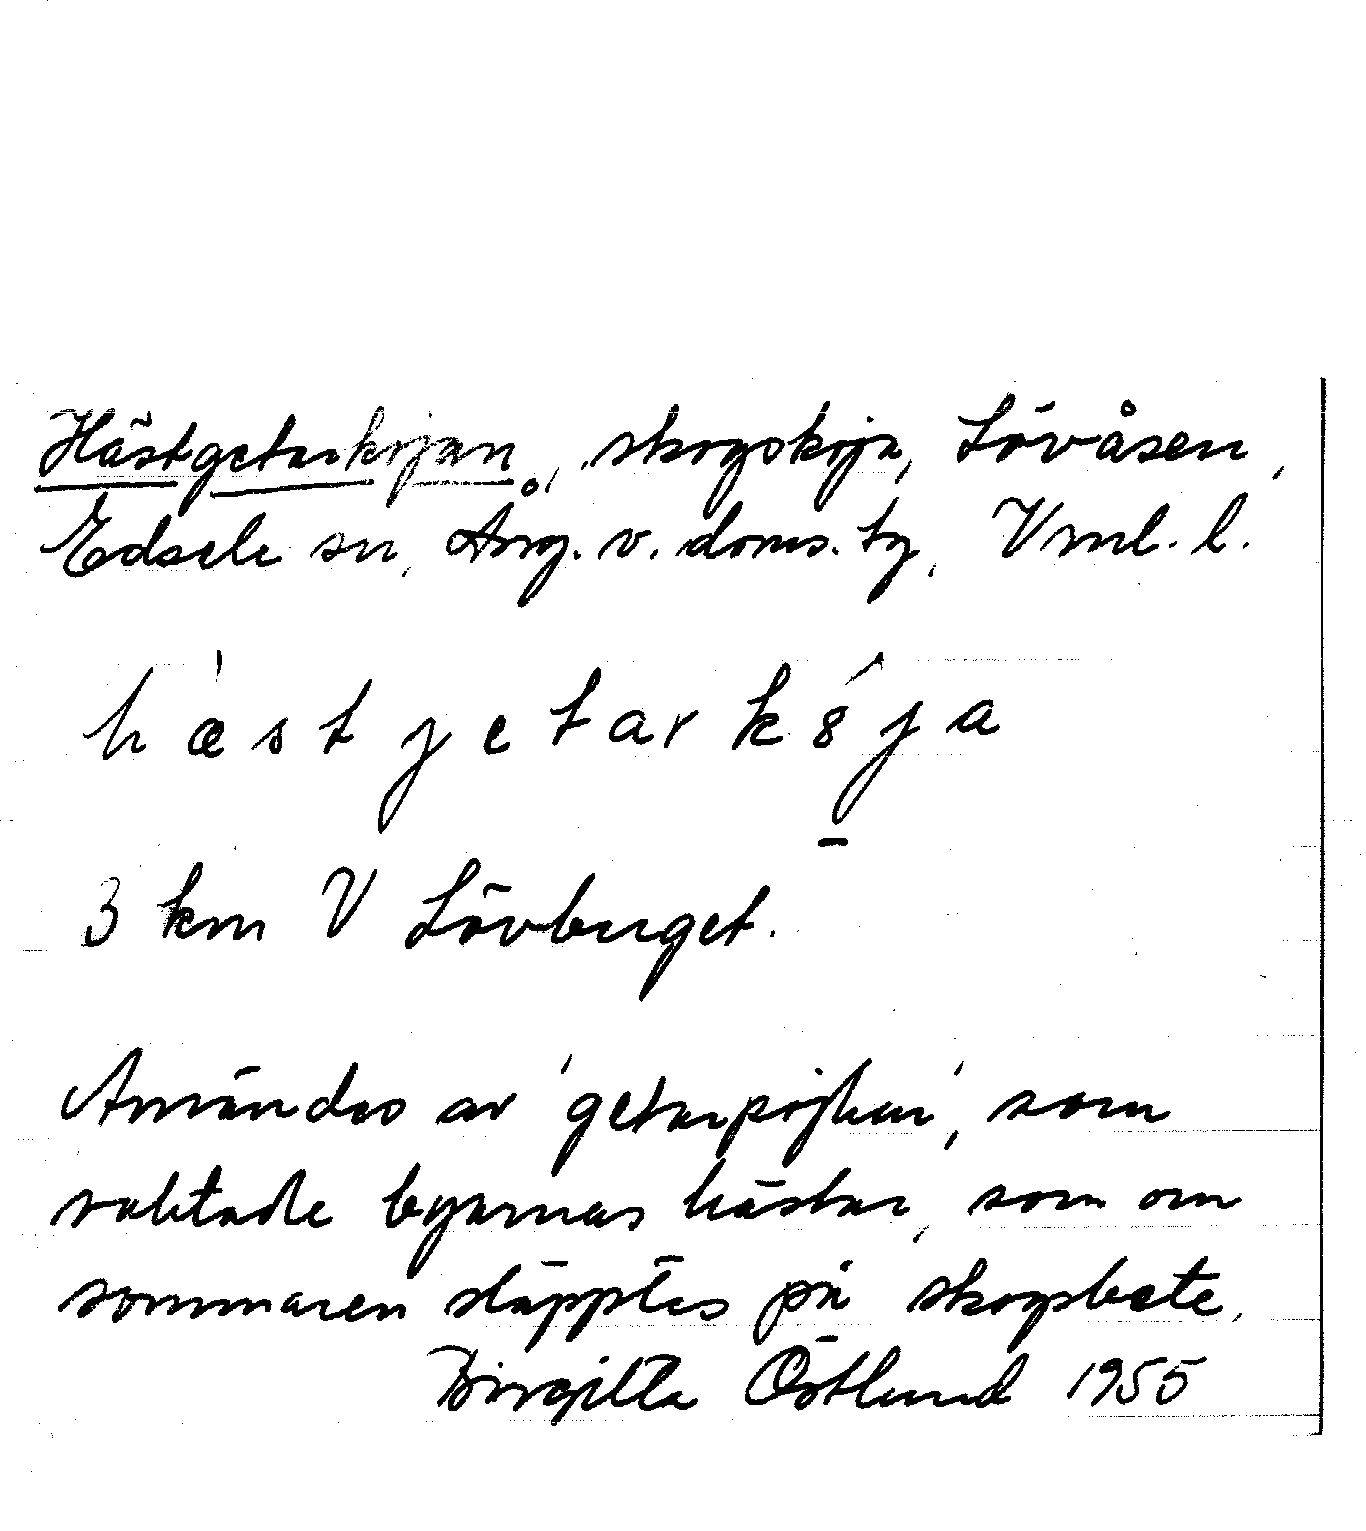 Hästgetarkojan, skogskoja, Lövåsen,
Edsele sn, Ång. v. doms. tg, Vml. l.
h æ s t j e t a r k 8 j a
3 km V Lövberget.
Användes av 'getarpojkar', som
vaktade byarnas hästar, som om
sommaren släpptes på skogsbete.
Birgitta Östlund 1955